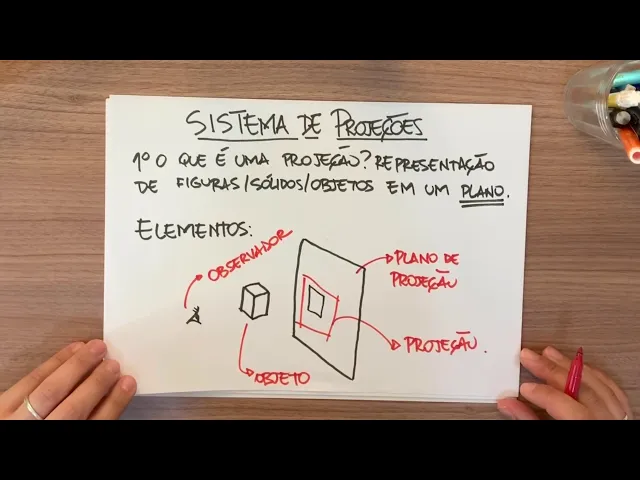 SISTEMA DE PROJEÇÕES
1º O QUE É UMA PROJEÇÃO? REPRESENTAÇÃO
DE FIGURAS/SÓLIDOS/OBJETOS EM UM PLANO.
ELEMENTOS:
OBSERVADOR
PLANO DE
PROJEÇÃO
PROJEÇÃO.
OBJETO